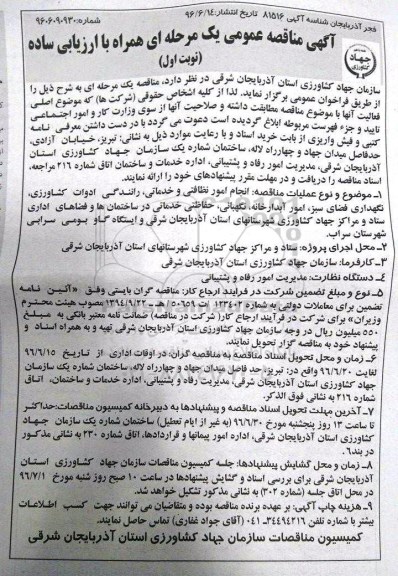 فجر آذربایجان شناسه آگهی ۸۱۵۱۶ تاریخ انتشار: ۹۶/۶/۱۴ شماره: ۹۶۰۶۰۹۰۹۳۰
آگهی مناقصه عمومی یک مرحله ای همراه با ارزیابی ساده
(نوبت اول)
جهاد
سازمان جهاد کشاورزی استان آذربایجان شرقی در نظر دارد، مناقصه یک مرحله ای به شرح ذیل را
از طریق فراخوان عمومی برگزار نماید. لذا از کلیه اشخاص حقوقی (شرکت ها) که موضوع اصلی
فعالیت آنها با موضوع مناقصه مطابقت داشته و صلاحیت آنها از سوی وزارت کار و امور اجتماعی
تایید و جزء فهرست مربوطه ابلاغ گردیده است دعوت می گردد با در دست داشتن معرفی نامه
کتبی و فیش واریزی از بابت خرید اسناد و با رعایت موارد ذیل به نشانی: تبریز، خیابان آزادی،
حدفاصل میدان جهاد و چهارراه لاله، ساختمان شماره یک سازمان جهاد کشاورزی استان
آذربایجان شرقی، مدیریت امور رفاه و پشتیبانی، اداره خدمات و ساختمان اتاق شماره ۲۱۶ مراجعه،
اسناد مناقصه را دریافت و در مهلت مقرر پیشنهادهای خود را ارائه نمایند.
۱- موضوع و نوع عملیات مناقصه: انجام امور نظافتی و خدماتی، رانندگی ادوات کشاورزی،
نگهداری فضای سبز، امور آبدارخانه، نگهبانی، حفاظتی خدماتی در ساختمان ها و فضاهای اداری
ستاد و مراکز جهاد کشاورزی شهرستانهای استان آذربایجان شرقی و ایستگاه گاو بومی سرابی
شهرستان سراب.
۲- محل اجرای پروژه: ستاد و مراکز جهاد کشاورزی شهرستانهای استان آذربایجان شرقی
۳- کارفرما: سازمان جهاد کشاورزی استان آذربایجان شرقی
۴- دستگاه نظارت: مدیریت امور رفاه و پشتیبانی
۵- نوع و مبلغ تضمین شرکت در فرایند ارجاع کار: مناقصه گران بایتی وفق «آئین نامه
تضمین برای معاملات دولتی به شماره ۱۲۳۴۰۲/ت ۵۰۶۵۹/هـ - ۱۳۹۴/۹/۲۲ مصوب هیئت محترم
وزیران» برای شرکت در فرآیند ارجاع کار( شرکت در مناقصه) ضمانت نامه معتبر بانکی به مبلغ
۵۵۰ میلیون ریال در وجه سازمان جهاد کشاورزی استان آذربایجان شرقی تهیه و به همراه اسناد و
پیشنهاد خود به مناقصه گزار تحویل نمایند.
۶- زمان و محل تحویل اسناد مناقصه به مناقصه گران: در اوقات اداری از تاریخ ۹۶/۶/۱۵
لغایت ۹۶/۶/۲۰ واقع در: تبریز، حد فاصل میدان جهاد و چهارراه لاله، ساختمان شماره یک سازمان
جهاد کشاورزی استان آذربایجان شرقی، مدیریت رفاه و پشتیبانی، اداره خدمات و ساختمان، اتاق
شماره ۲۱۶ به نشانی فوق الذکر.
۷- آخرین مهلت تحویل اسناد مناقصه و پیشنهادها به دبیرخانه کمیسیون مناقصات: حداکثر
تا ساعت ۱۳ روز پنجشنبه مورخ ۹۶/۶/۳۰ (به غیر از ایام تعطیل) ساختمان شماره یک سازمان جهاد
کشاورزی استان آذربایجان شرقی، اداره امور پیمانها و قراردادها، اتاق شماره ۲۳۰ به نشانی مذکور
در بند۶.
۸- زمان و محل گشایش پیشنهادها: جلسه کمیسیون مناقصات سازمان جهاد کشاورزی استان
آذربایجان شرقی برای بررسی اسناد و گشایش پیشنهادها در ساعت ۱۰ صبح روز شنبه مورخ ۹۶/۷/۱
در محل اتاق جلسه (شماره ۳۰۲) به نشانی مذکور تشکیل خواهد شد.
۹- هزینه چاپ آگهی: بر عهده برنده مناقصه بوده و متقاضیان می توانند جهت کسب اطلاعات
بیشتر با شماره تلفن ۳۴۴۹۴۲۱۶-۰۴۱ (آقای غفاری) تماس حاصل نمایند.
کمیسیون مناقصات سازمان جهاد کشاورزی استان آذربایجان شرقی